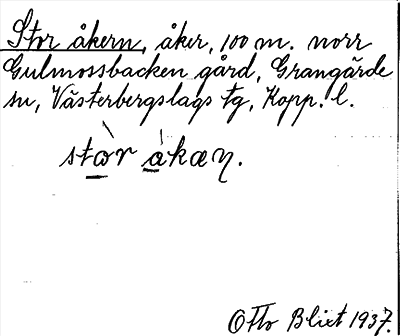 Stor åkern, åker, 100 m. norr
Gulmossbacken gård, Grangärde
sn, Västerbergslags tg, Kopp. l.
Otto Blixt 1937.